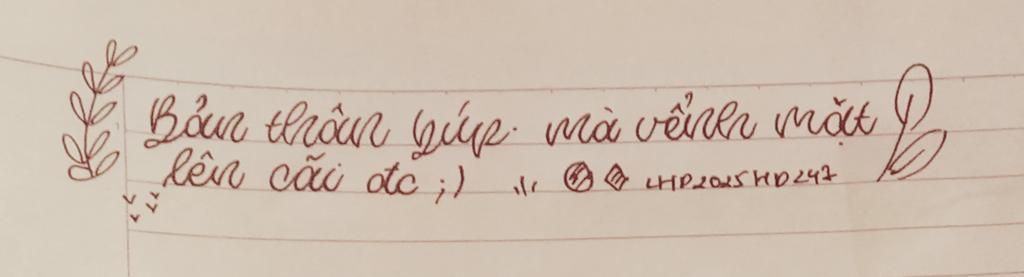 Bản thân búp. mà vểnh mặt
lên cãi đc ;)
LHP2025HD247